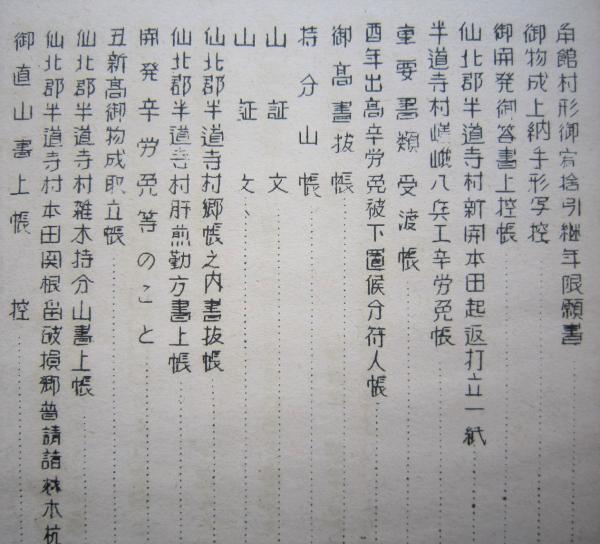 角館村形御宥捨引継年限願書
御物成上納手形写控
御開発御答書上控帳
仙北郡半道寺村新開本田起返打立一紙
半道寺村嵯峨八兵エ辛労免帳
重要書類受渡帳
酉年出高辛労免被下置候分符人帳
御高書抜帳
持分山帳
山証文
山証文
仙北郡半道寺村郷帳之内書抜帳
仙北郡半道寺村肝煎勤方書上帳
開発辛労免等のこと
丑新高御物成取立帳
仙北郡半道寺村雑木持分山書上帳
仙北郡半道寺村本田関根留破損郷普請諸材木杭
御直山書上帳 控